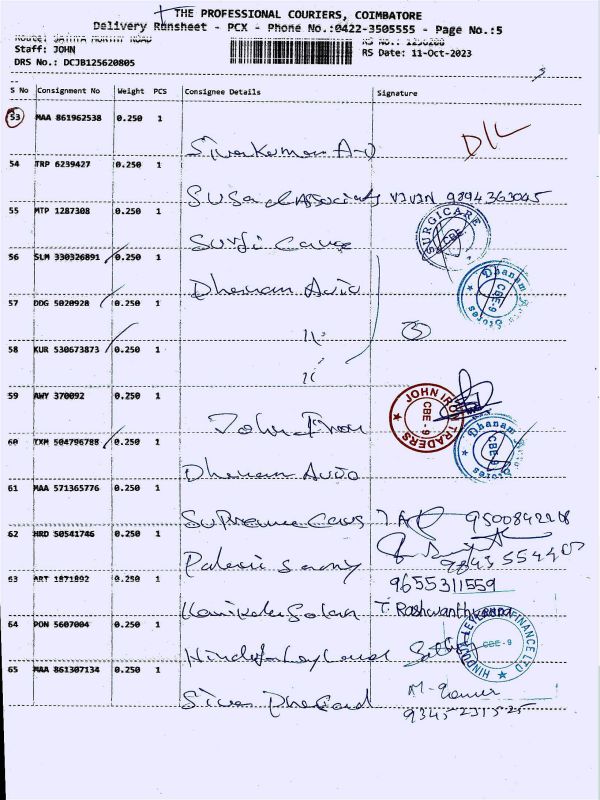 THE PROFESSIONAL COURIERS, COIMBATORE
Delivery Runsheet - PCX - Phone No.:0422-3505555 - Page No.:5
Route: SATHYA MURTHY ROAD
Staff: JOHN
RS Date: 11-Oct-2023
DRS No.: DCJB125620805
S No Consignment No Weight PCS Consignee Details Signature
53 MAA 861962538 0.250 1
Sivakumar A-O D/L
54 TRP 6239427 0.250 1
Susa Associats VIVIN 9894363045
55 MTP 1287308 0.250 1
Surgi Care SURGICARE CBE
56 SLM 330326891 0.250 1
Dhanam Auto Dhanam Auto Stores CBE-9
57 DDG 5020928 0.250 1
11 3
58 KUR 530673873 0.250 1
11
59 AWY 370092 0.250 1
John Iron JOHN IRON TRADERS CBE - 9
60 TXM 504796788 0.250 1
Dhanam Auto Dhanam Auto Stores CBE-9
61 MAA 571365776 0.250 1
Supreme Cars 9500842208
62 HRD 50541746 0.250 1
Palani Samy
9655311559
63 ART 1871892 0.250 1
T. Rashwanthkumar
64 PON 5607004 0.250 1
Hinduja Leyland HINDUJA LEYLAND FINANCE LTD CBE - 9
65 MAA 861307134 0.250 1
Siva Prasad
9345231525